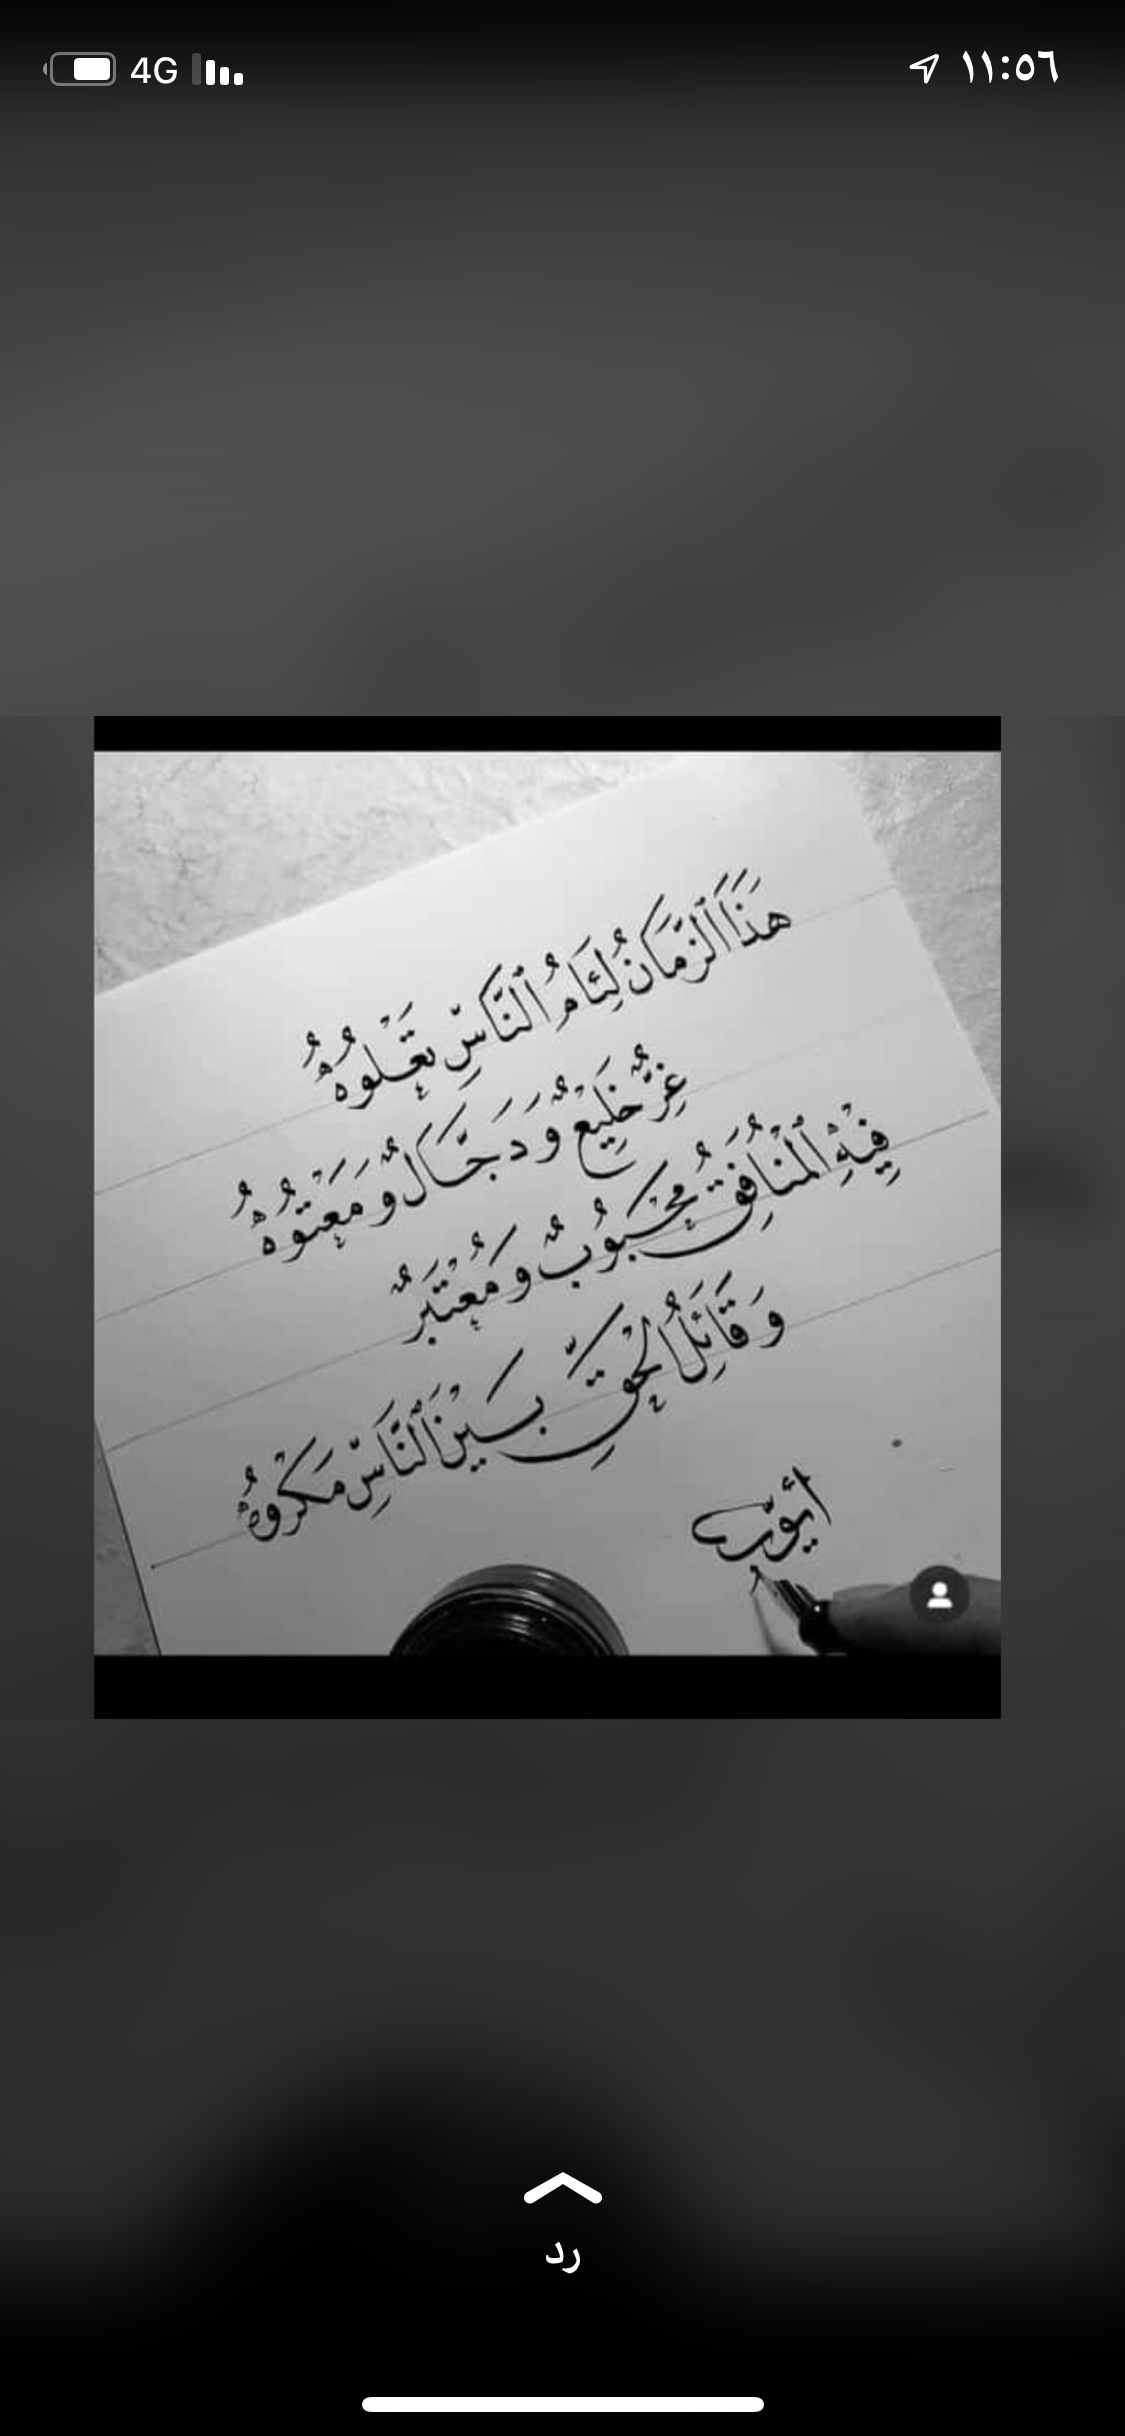 ١١:٥٦
4G
هَذَا ٱلزَّمَانُ لِئَامُ ٱلنَّاسِ تَعْلُوهُ
غِرٌّ خَلِيعٌ وَدَجَّالٌ وَمَعْتُوهُ
فِيْهِ ٱلْمُنَافِقُ مَحْبُوبٌ وَمُعْتَبَرٌ
وَقَائِلُ الْحَقِّ بَيْنَ ٱلنَّاسِ مَكْرُوهُ
أيّوب
رد